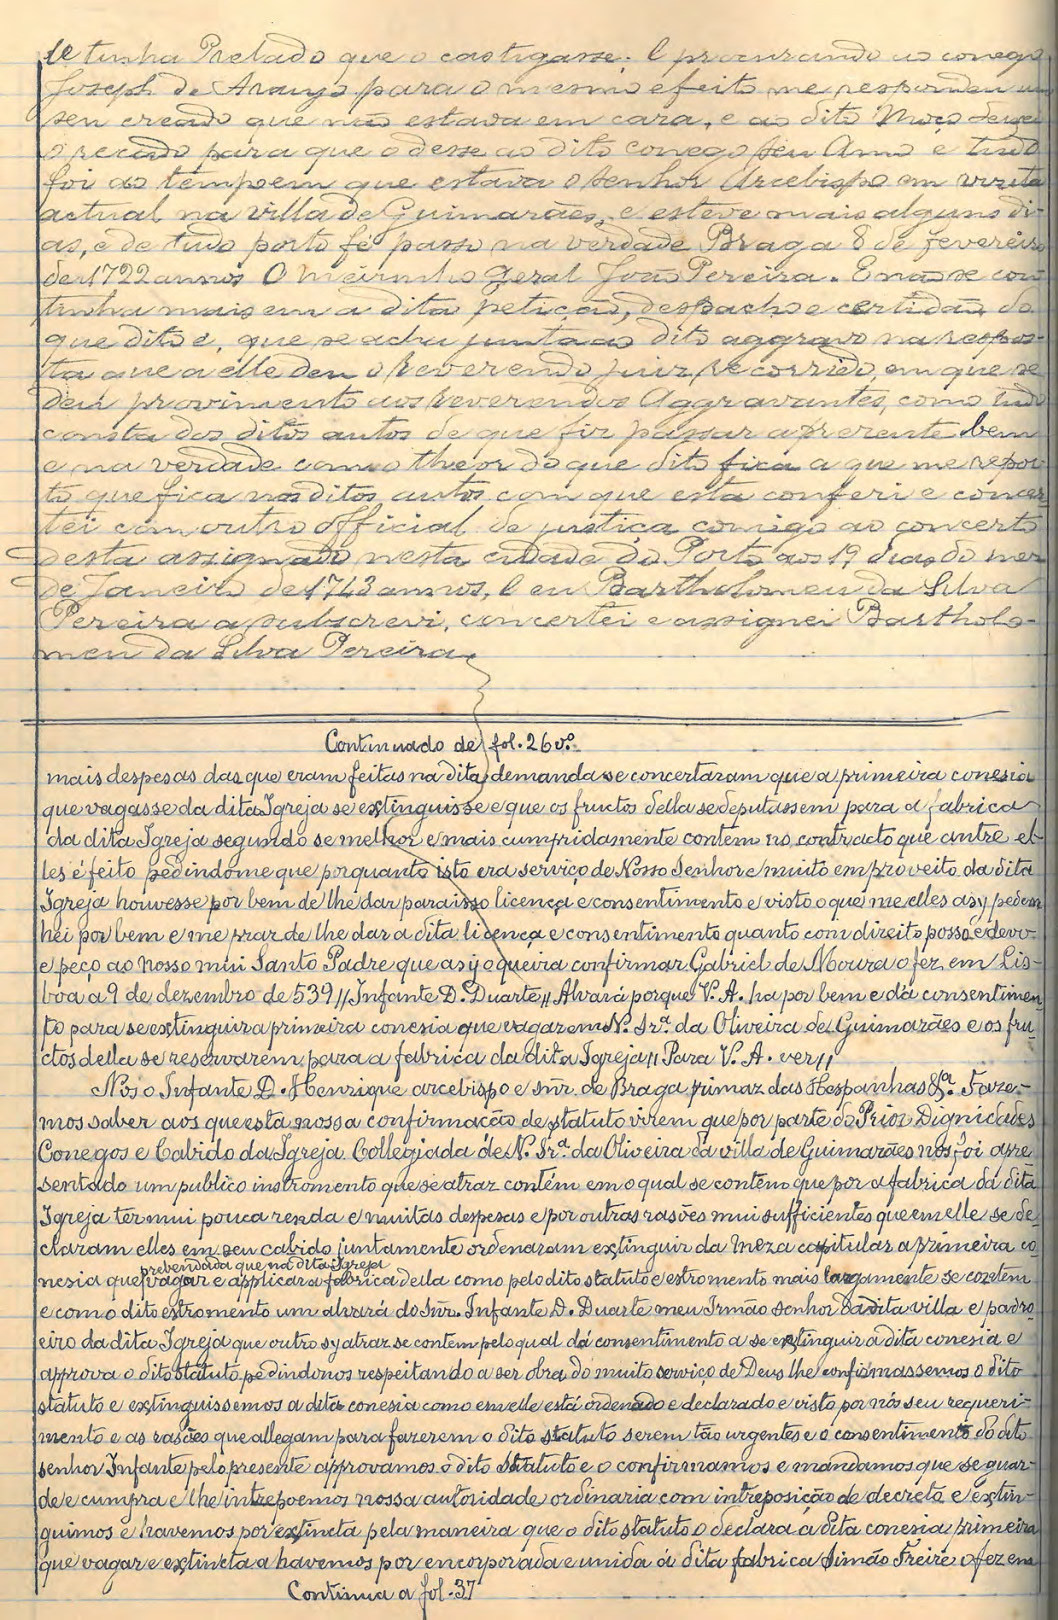 le tinha Prelado que o castigasse. E procurando ao conego
Joseph de Araujo para o mesmo efeito me respondeu um
seu creado que não estava em caza, e ao dito Moço deixei
o recado para que o desse ao dito conego seu Amo e tudo
foi ao tempo em que estava o Senhor Arcebispo em vizita
actual na villa de Guimarães, e esteve mais alguns di-
as, e de tudo porto fé passo na verdade Braga 8 de fevereiro
de 1722 annos O Meirinho Geral João Pereira. E não se con
tinha mais em a dita petição, despacho e certidão do
que dito é, que se achu junta ao dito aggravo na respos-
ta que a elle deu o Reverendo juiz recorrido, em que se
deu provimento aos Reverendos Aggravantes, como tudo
consta dos ditos autos de que fiz passar a prezente bem
e na verdade com o theor do que dito fica a que me repor
to que fica nos ditos autos com que esta conferi e concer
tei com outro official de justiça comigo ao concerto
desta assignado nesta cidade do Porto aos 19 dias do mez
de Janeiro de 1743 annos, E eu Bartholomeu da Silva
Pereira a subscrevi, concertei e assignei Bartholo-
meu da Silva Pereira
Continuado de fol. 26 vº.
mais despesas das que eram feitas na dita demanda se concertaram que a primeira conesia
que vagasse da dita Igreja se extinguisse e que os fructos della se deputassem para a fabrica
da dita Igreja segundo se melhor e mais cumpridamente contém no contracto que antre el-
les é feito pedindome que porquanto isto era serviço de Nosso Senhor e muito em proveito da dita
Igreja houvesse por bem de lhe dar para isso licença e consentimento e visto o que me elles asy pedem
hei por bem e me praz de lhe dar a dita licença e consentimento quanto com direito posso e devo
e peço ao nosso mui Santo Padre que asy o queira confirmar. Gabriel de Moura o fez em Lis-
boa a 9 de dezembro de 539 // Infante D. Duarte // Alvará porque V. A. ha por bem e dá consentimen-
to para se extinguir a primeira conesia que vagar em N. Srª. da Oliveira de Guimarães e os fru-
ctos della se reservarem para a fabrica da dita Igreja // Para V. A. ver //
Nós o Infante D. Henrique arcebispo e snr. de Braga primaz das Hespanhas &ª. Faze-
mos saber aos que esta nossa confirmação de statuto virem que por parte do Prior Dignidades
Conegos e Cabido da Igreja Collegiada de N. Srª. da Oliveira da villa de Guimarães nos foi apre
sentado um publico instromento que se atraz contém em o qual se contem que por a fabrica da dita
Igreja ter mui pouca renda e muitas despesas e por outras rasões mui sufficientes que em elle se de-
claram elles em seu cabido juntamente ordenaram extinguir da meza capitular a primeira co-
prebendada que na dita Igreja
nesia que vagar e applicar a fabrica della como pelo dito statuto e estromento mais largamente se contém
e com o dito estromento um alvará do Snr. Infante D. Duarte meu Irmão senhor da dita villa e padro-
eiro da dita Igreja que outro sy atraz se contem pelo qual dá consentimento a se extinguir a dita conesia e
approva o dito statuto pedindonos respeitando a ser obra do muito serviço de Deus lhe confirmassemos o dito
statuto e extinguissemos a dita conesia como em elle está ordenado e declarado e visto por nós seu requeri-
mento e as rasões que allegam para fazerem o dito statuto serem tão urgentes e o consentimento do dito
senhor Infante pelo presente approvamos o dito statuto e o confirmamos e mandamos que se guar-
de e cumpra e lhe intrepoemos nossa autoridade ordinaria com intreposição de decreto e extin-
guimos e havemos por extincta pela maneira que o dito statuto o declara a dita conesia primeira
que vagar e extincta a havemos por encorporada e unida á dita fabrica Simão Freire o fez em
Continua a fol. 37